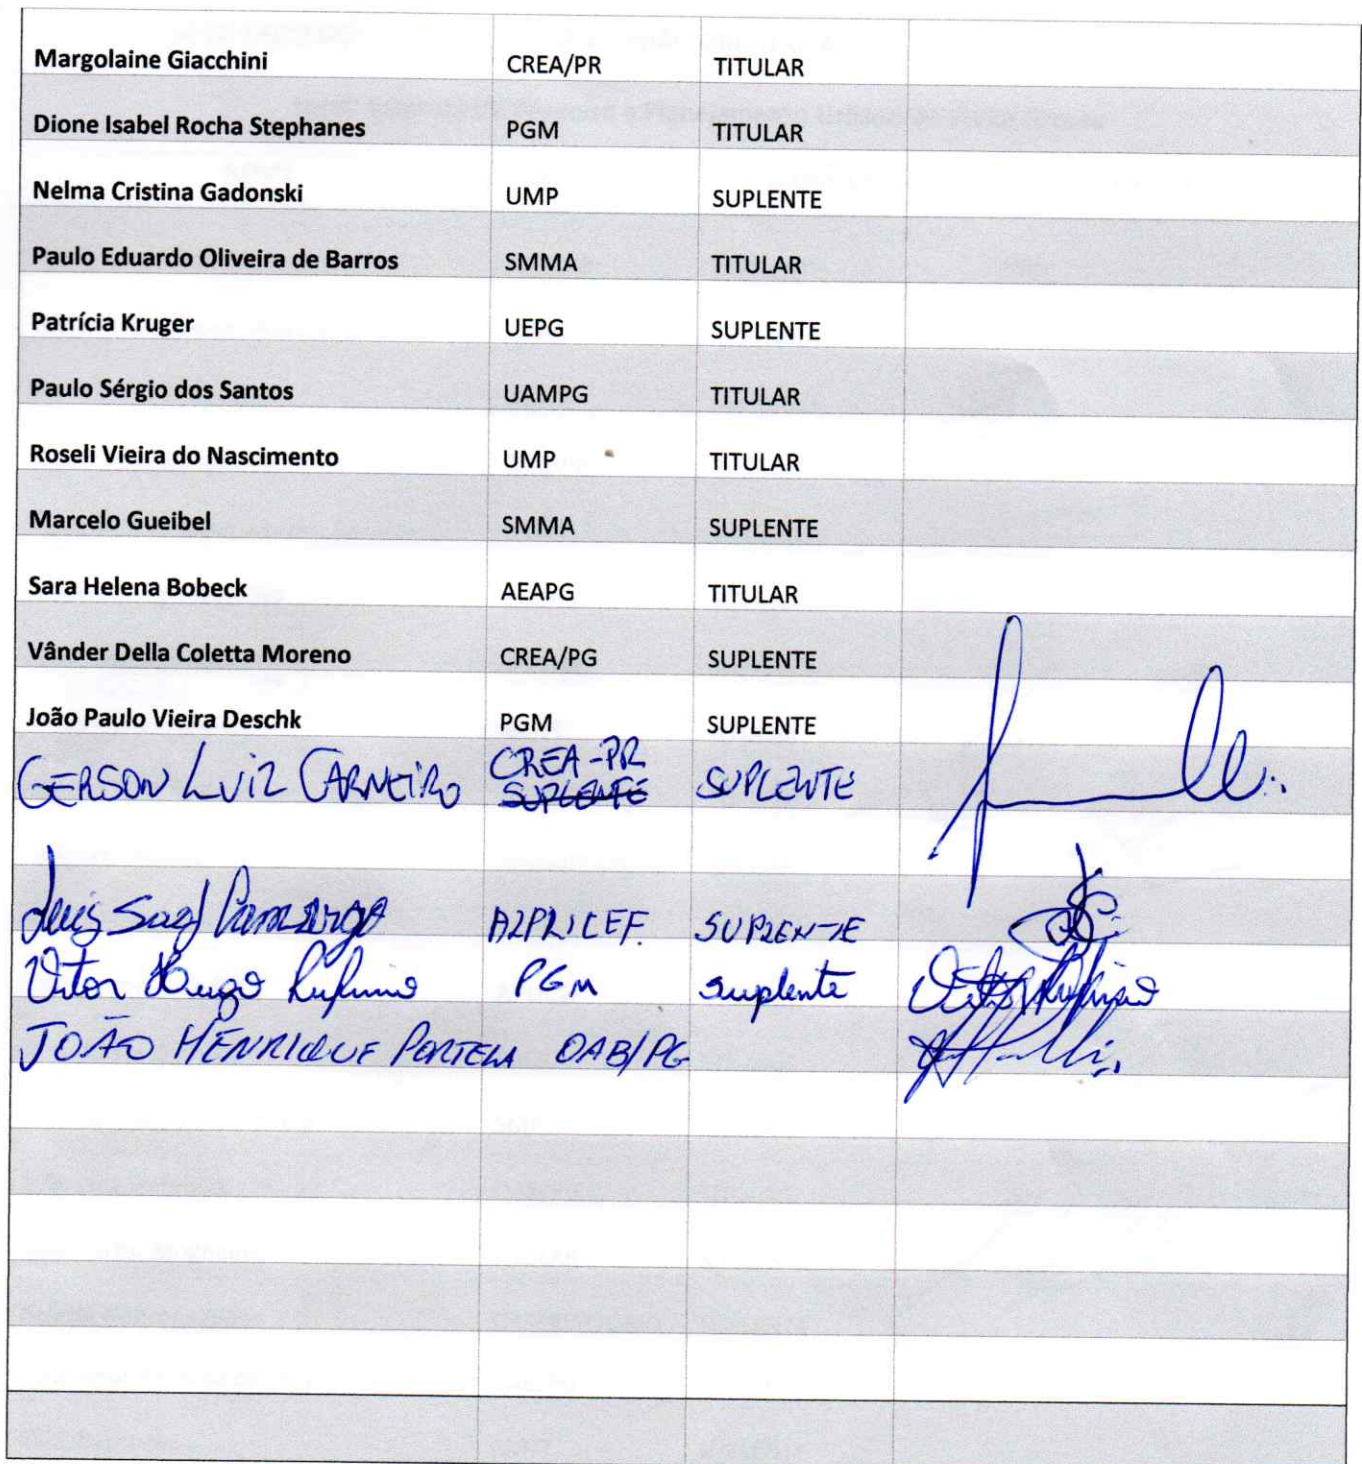 Margolaine Giacchini CREA/PR TITULAR
Dione Isabel Rocha Stephanes PGM TITULAR
Nelma Cristina Gadonski UMP SUPLENTE
Paulo Eduardo Oliveira de Barros SMMA TITULAR
Patrícia Kruger UEPG SUPLENTE
Paulo Sérgio dos Santos UAMPG TITULAR
Roseli Vieira do Nascimento UMP TITULAR
Marcelo Gueibel SMMA SUPLENTE
Sara Helena Bobeck AEAPG TITULAR
Vânder Della Coletta Moreno CREA/PG SUPLENTE
João Paulo Vieira Deschk PGM SUPLENTE
GERSON LUIZ CARNEIRO CREA-PR SUPLENTE
SUPLENTE
Camargo SUPLENTE
Vitor Hugo Rufino PGM suplente
JOÃO HENRIQUE PORTELA OAB/PG